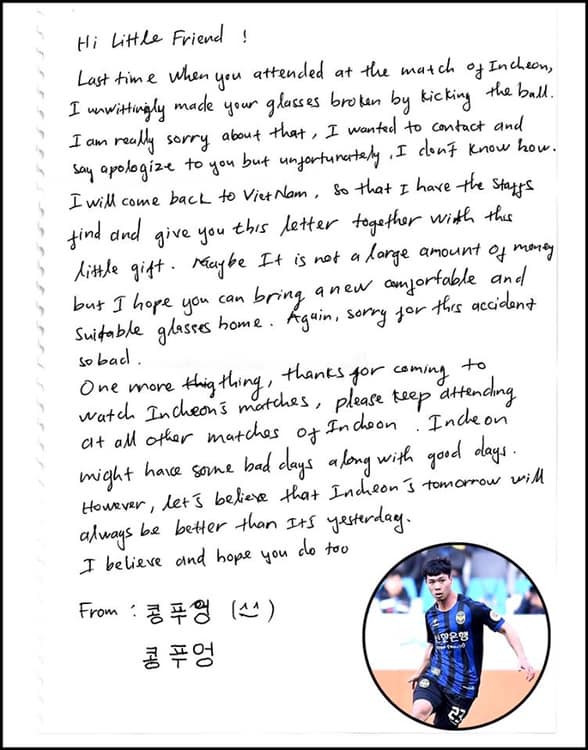 Hi Little Friend !
Last time when you attended at the match of Incheon,
I unwittingly made your glasses broken by kicking the ball.
I am really sorry about that, I wanted to contact and
say apologize to you but unfortunately, I don't know how.
I will come back to VietNam, so that I have the staffs
find and give you this letter together with this
little gift. Maybe It is not a large amount of money
but I hope you can bring a new comfortable and
suitable glasses home. Again, sorry for this accident
so bad.
One more thig thing, thanks for coming to
watch Incheon's matches, please keep attending
at all other matches of Incheon. Incheon
might have some bad days along with good days.
However, let's believe that Incheon's tomorrow will
always be better than its yesterday.
I believe and hope you do too
From : 콩푸엉 (^^)
콩푸엉
신한은행
23